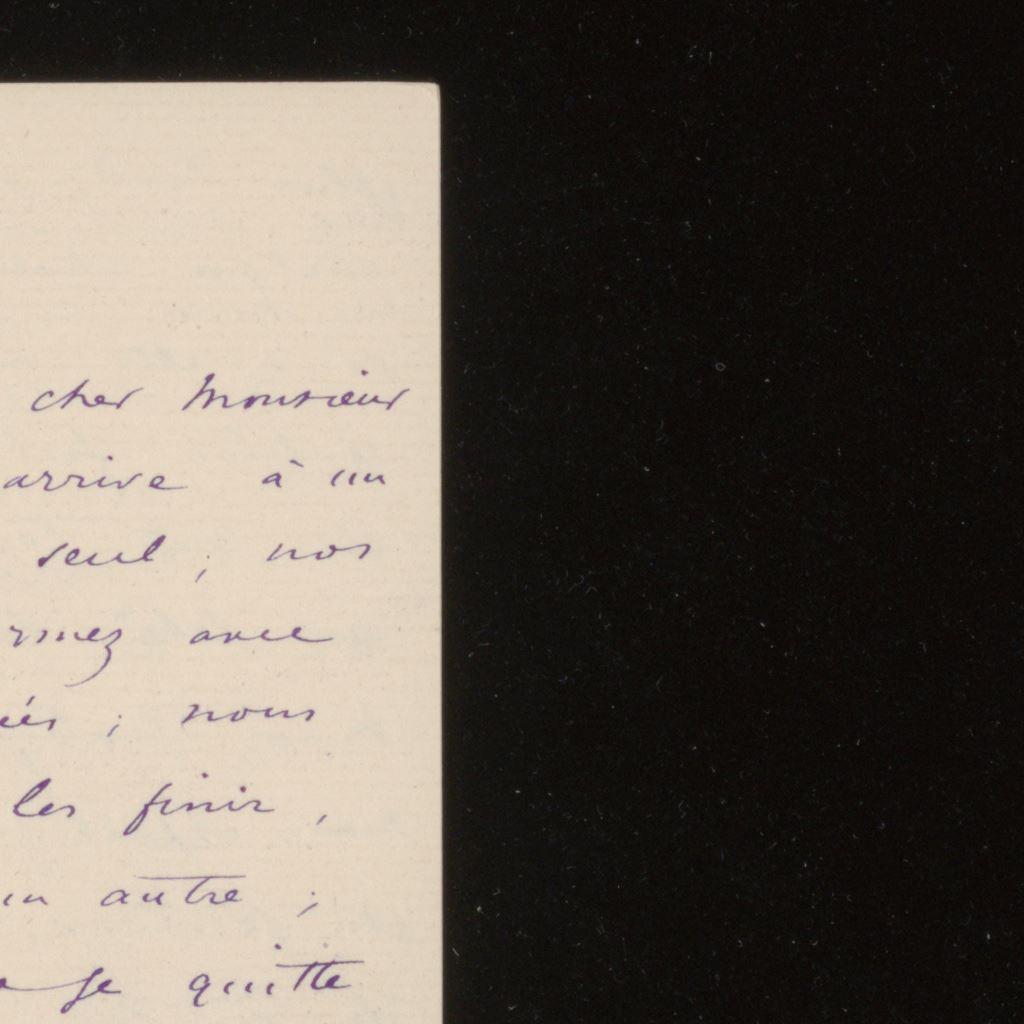 cher Monsieur
arrive à un
seul ; nos
rmez avec
iés ; nous
les finir ,
un autre ;
se quitte